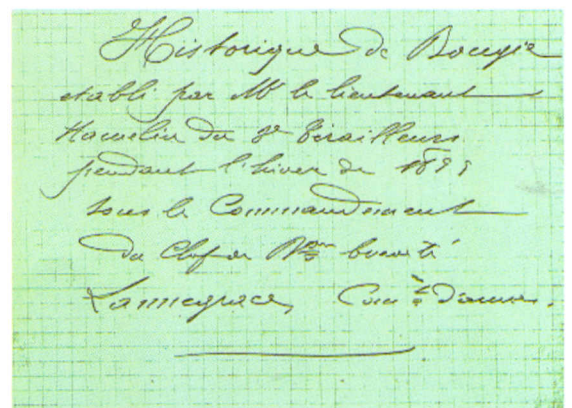 Historique de Bougie
etabli par Mr le lieutenant
Hamelin du 3e Tirailleurs
pendant l'hiver de 1899
sous le Commandement
du Chef de Bon breveté
Lannegrace, Comt d'armes.